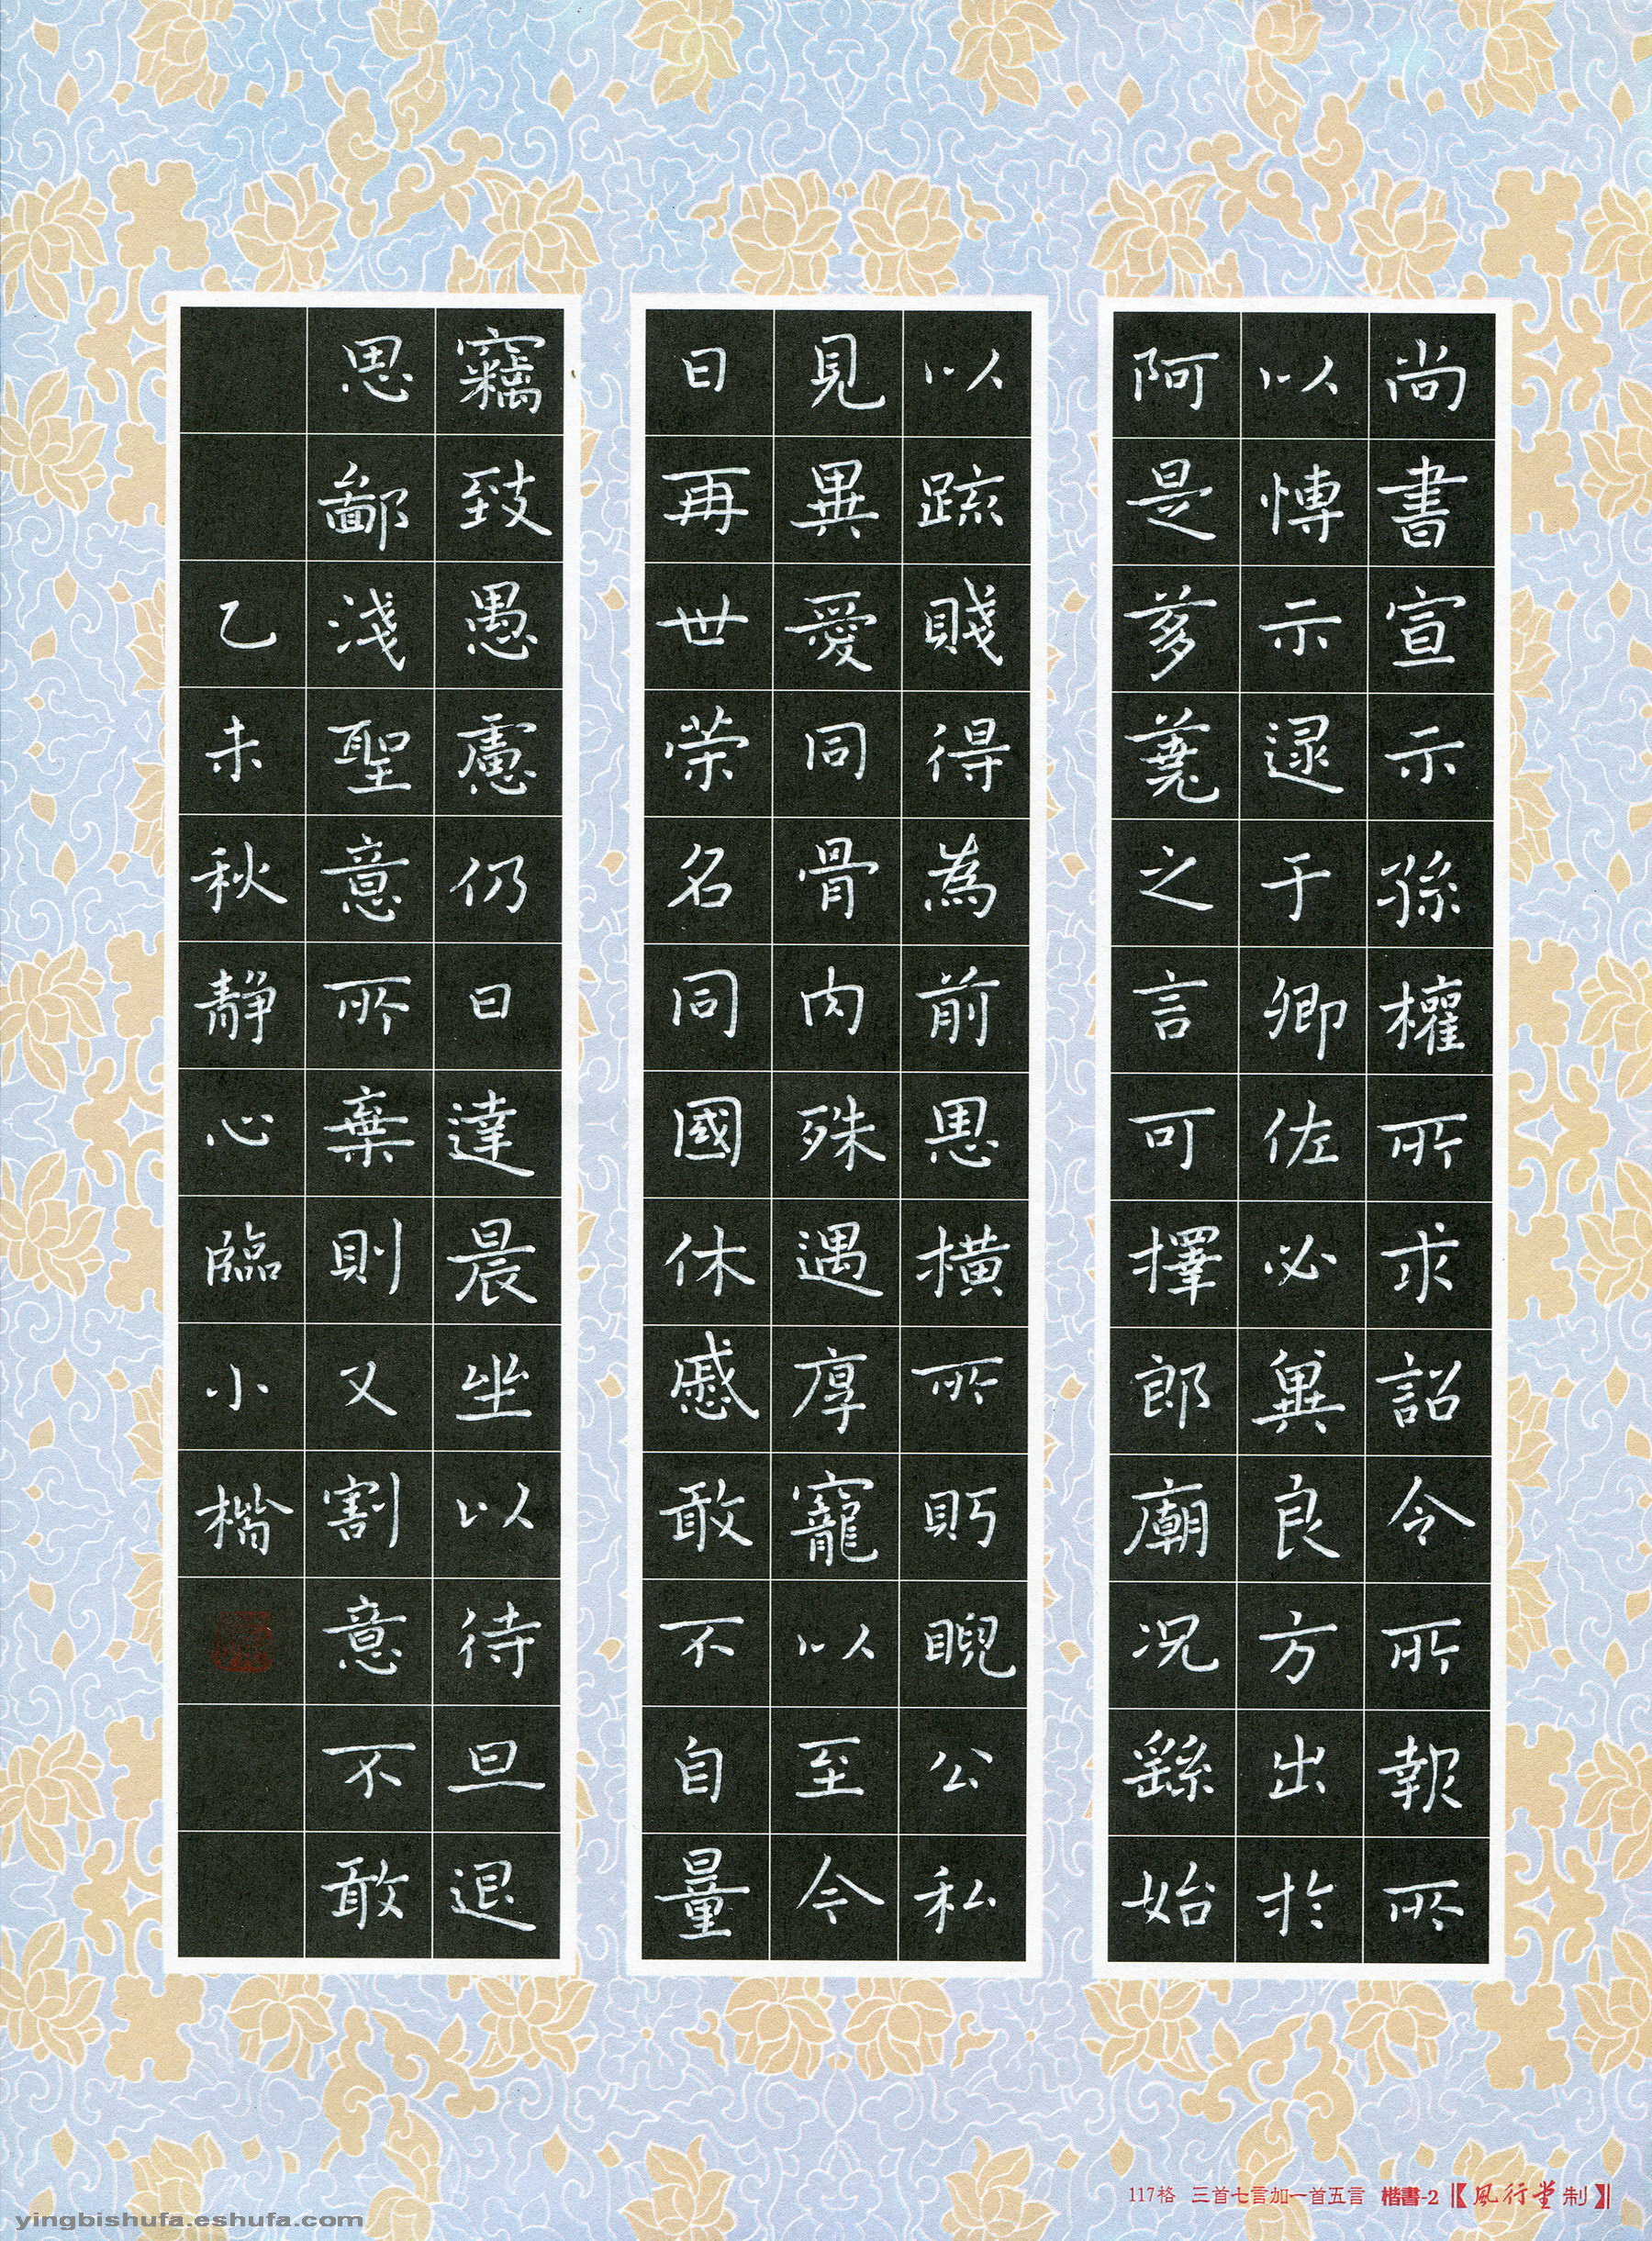 尚書宣示孫權所求詔令所報所
以博示逯于卿佐必冀良方出於
阿是芻蕘之言可擇郎廟況繇始
以疏賤得為前恩橫所眄睨公私
見異愛同骨肉殊遇厚寵以至今
日再世榮名同國休慼敢不自量
竊致愚慮仍日達晨坐以待旦退
思鄙淺聖意所棄則又割意不敢
乙未秋靜心臨小楷
117格 三首七言加一首五言 楷書-2【風行堂制】
yingbishufa.eshufa.com